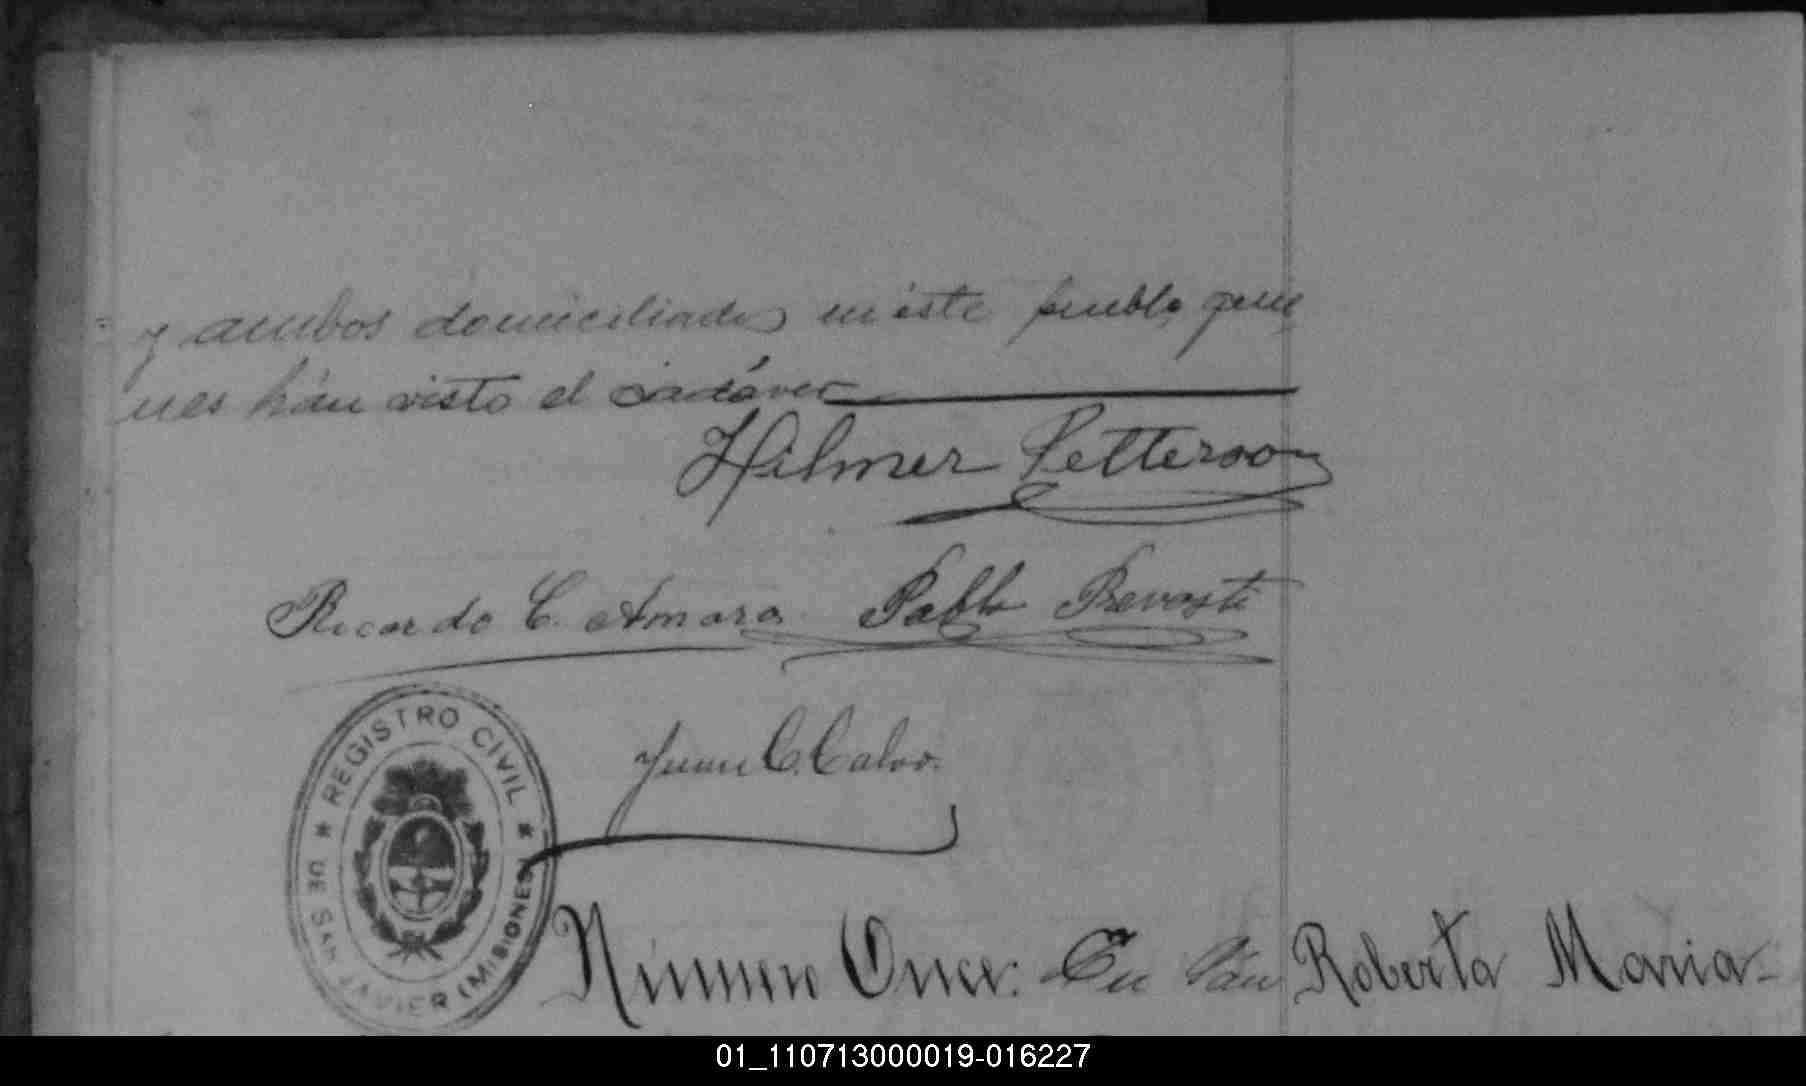 y ambos domiciliados en éste pueblo, quie
nes hán visto el cadáver
Hilmer Petterson
Ricardo C. Amaro. Pablo
Juan C. Calvo.
★ REGISTRO CIVIL ★
DE SAN JAVIER (MISIONES)
Número Once. En Sán
Roberta Maria-
01_110713000019-016227